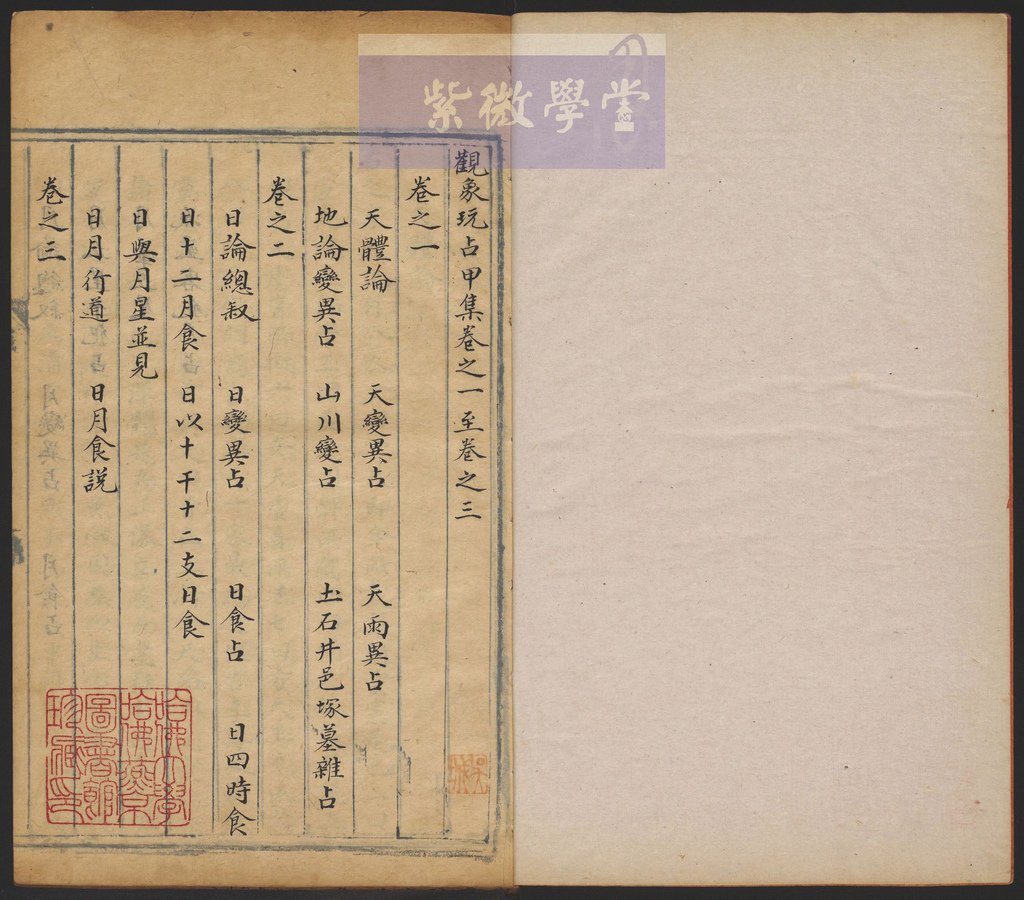 紫微學堂
觀象玩占甲集卷之一至卷之三
卷之一
天體論 天變異占 天雨異占
地論變異占 山川變占 土石井邑塚墓雜占
卷之二
日論總叙 日變異占 日食占 日四時食
日十二月食 日以十干十二支日食
日與月星並見
日月行道 日月食説
卷之三
哈佛大學
哈佛燕京
圖書館
珍藏印